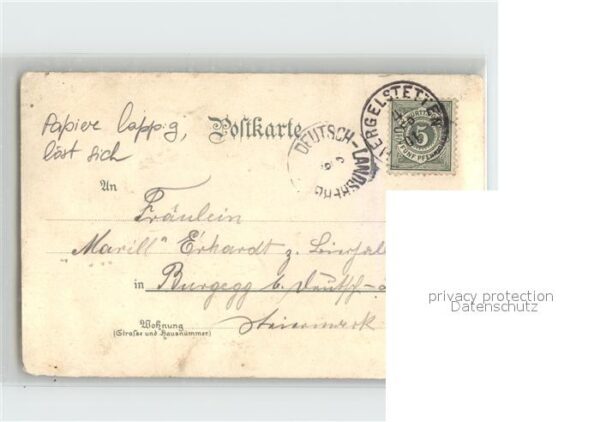 Papier lappig,
löst sich
Postkarte
MERGELSTETTEN
DEUTSCH-LANDSBERG
5
FÜNF PFENNIG
An
Fräulein
"Marill" Erhardt z.
in Burgegg b. Deutsch-
Steiermark
Wohnung
(Straße und Hausnummer)
privacy protection
Datenschutz